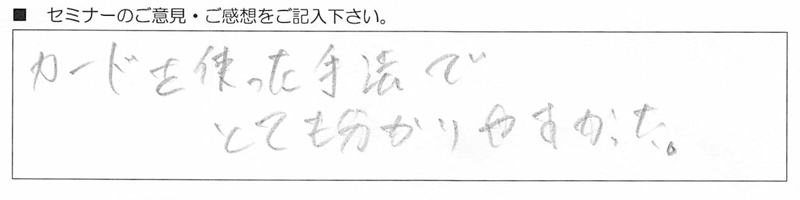 ■ セミナーのご意見・ご感想をご記入下さい。
カードを使った手法で
とても分かりやすかった。